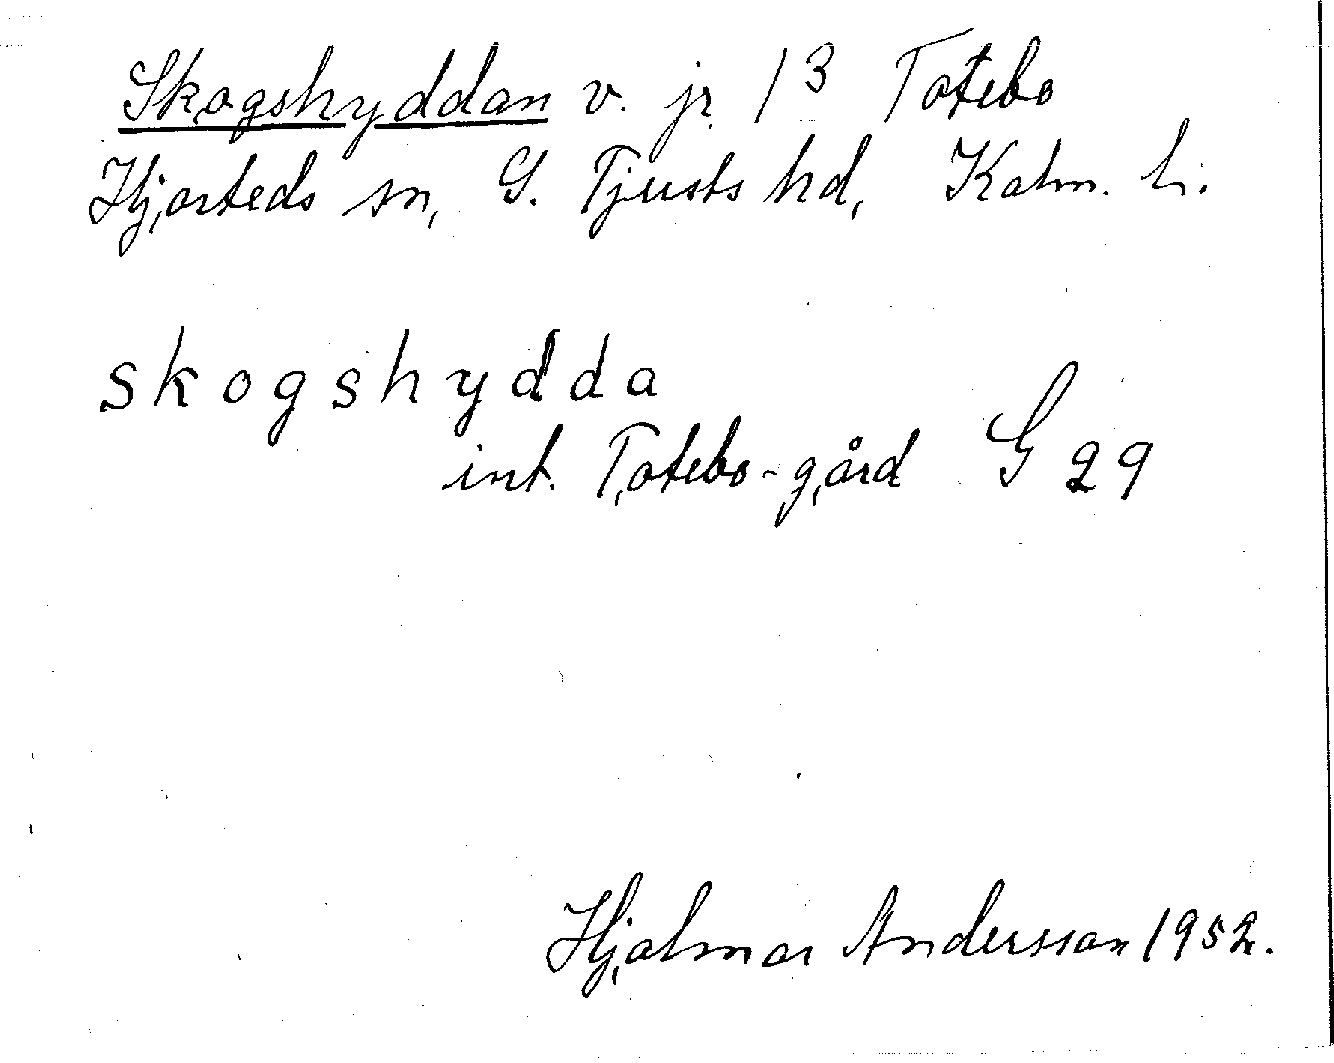 Skogshyddan v. jr 1³ Totebo
Hjorteds sn, S. Tjusts hd, Kalm. l.
skogshydda
int. Totebo-gård G 29
Hjalmar Andersson 1952.